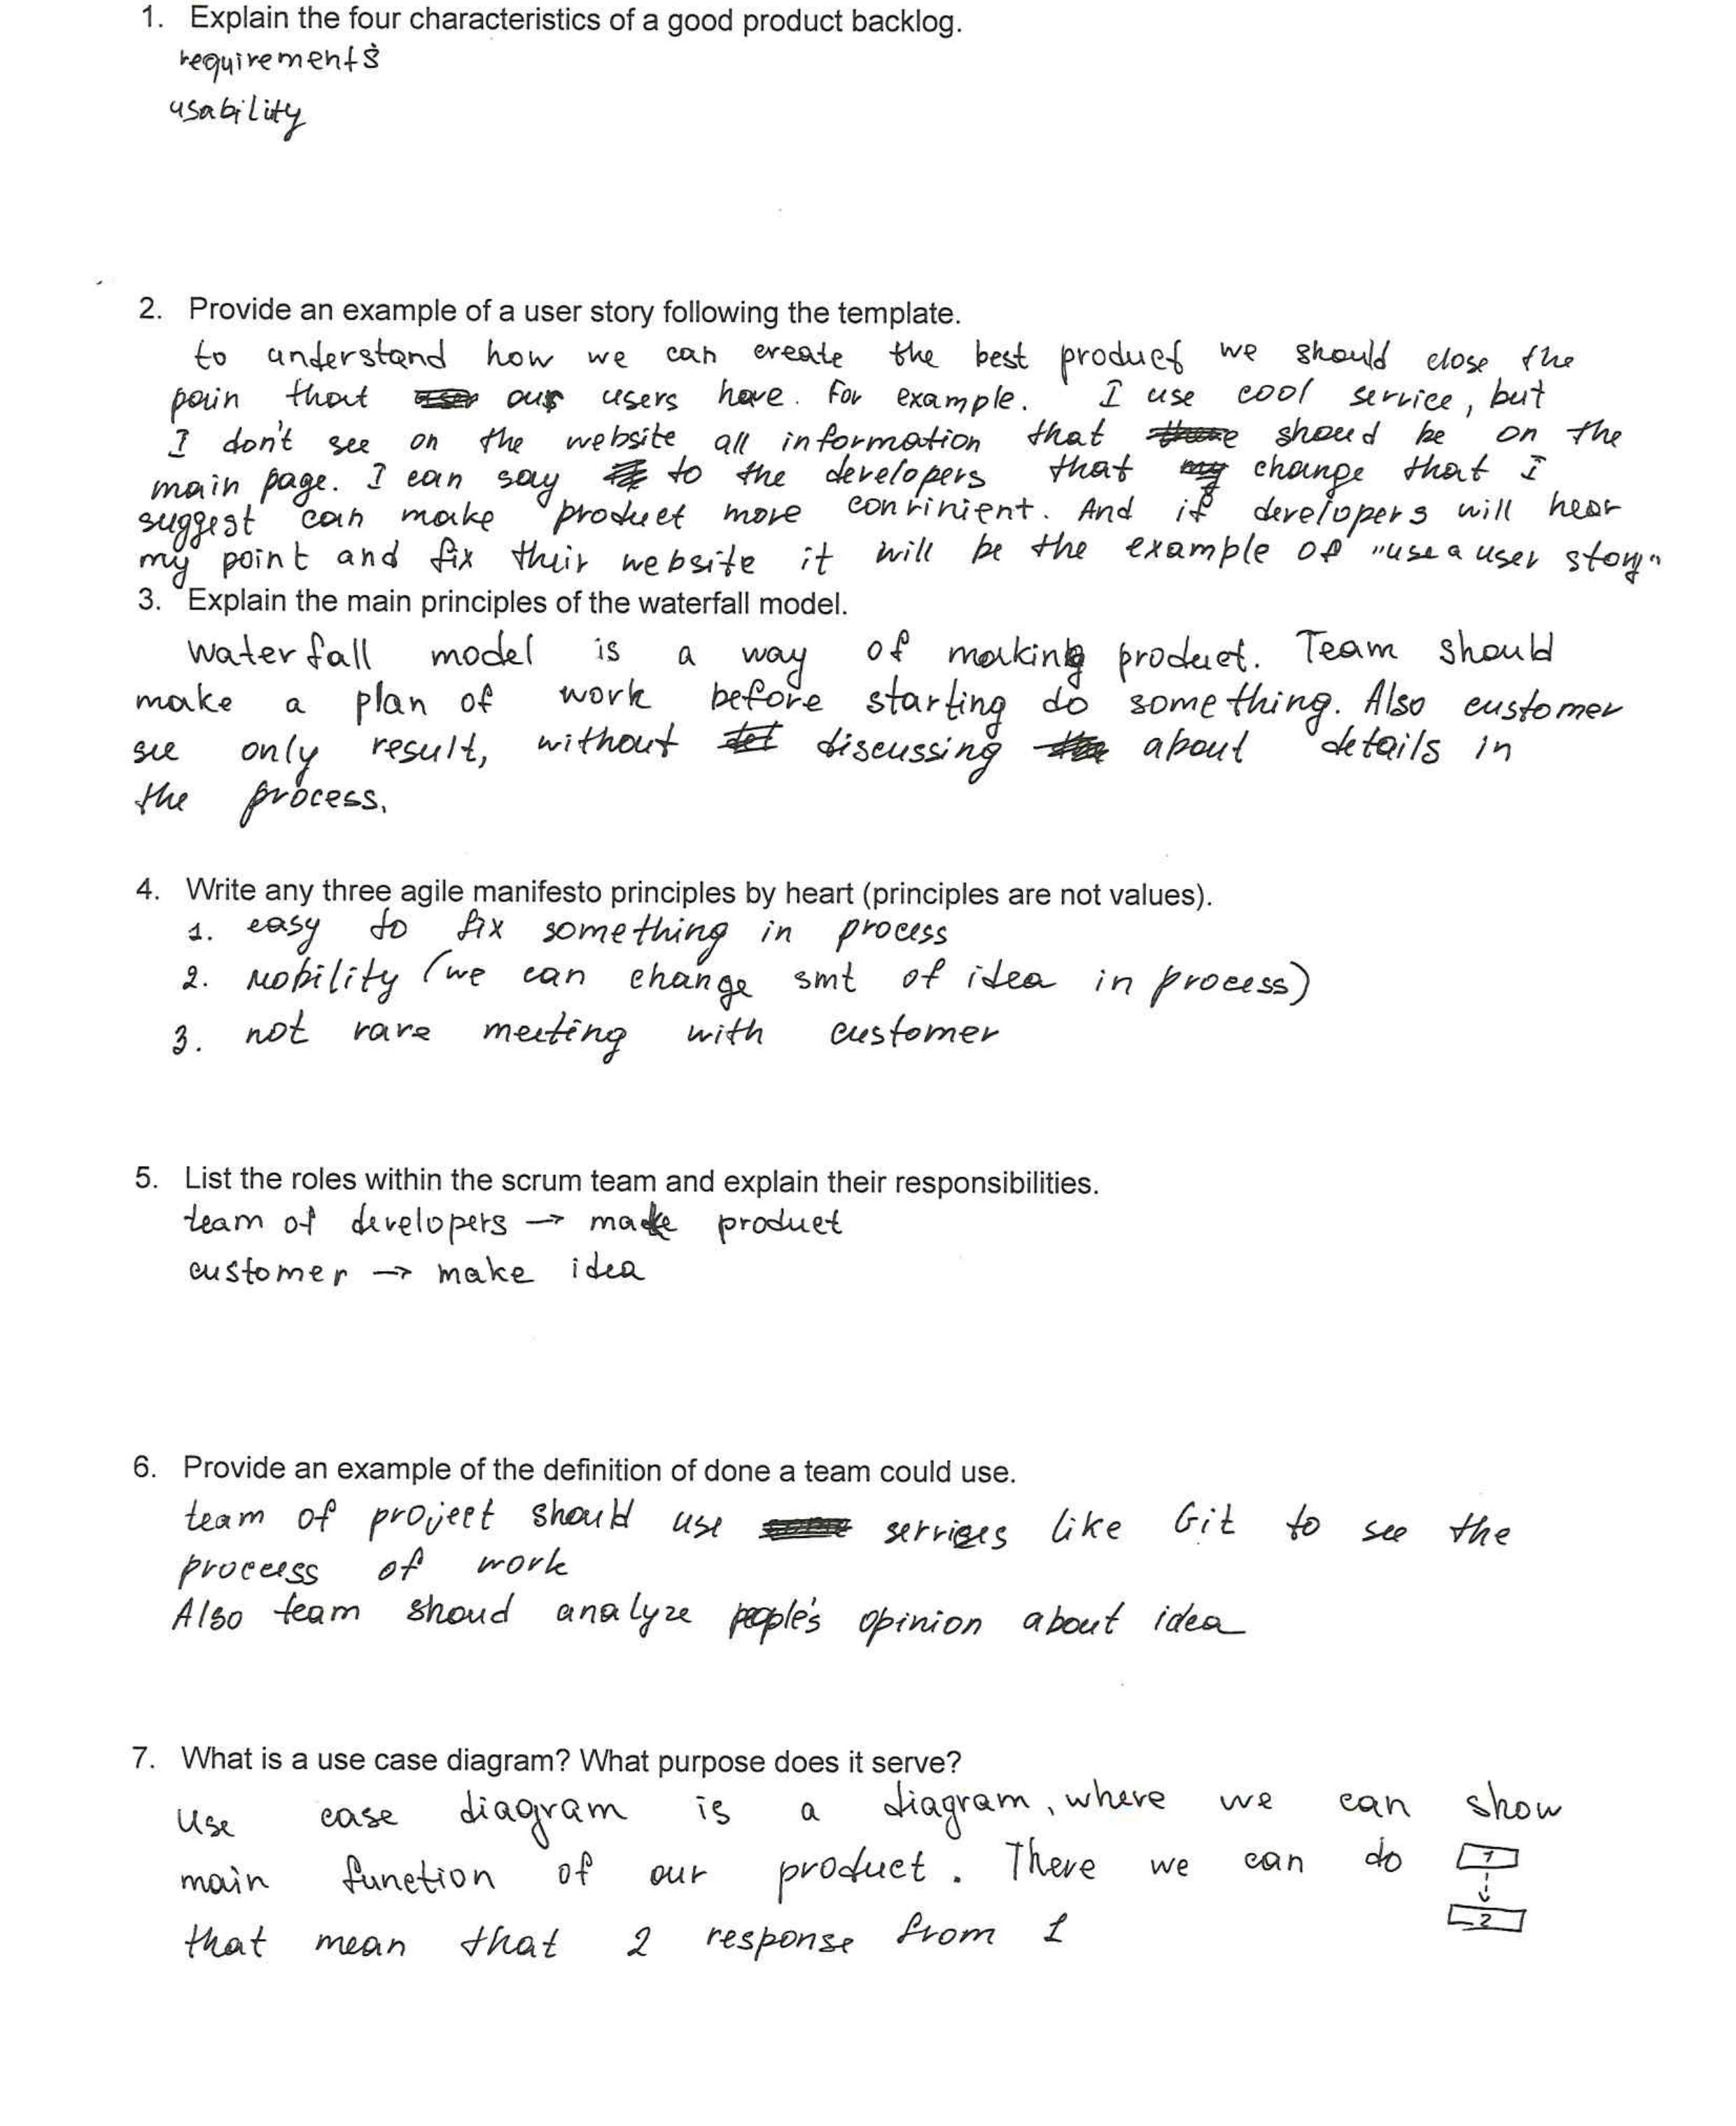 1. Explain the four characteristics of a good product backlog.
requirements
usability
2. Provide an example of a user story following the template.
to understand how we can create the best product we should close the
pain that our users have. For example. I use cool service, but
I don't see on the website all information that shoud be on the
main page. I can say to the developers that change that I
suggest can make product more convinient. And if developers will hear
my point and fix their website it will be the example of "use a user story"
3. Explain the main principles of the waterfall model.
Waterfall model is a way of making product. Team should
make a plan of work before starting do something. Also customer
see only result, without discussing about details in
the process.
4. Write any three agile manifesto principles by heart (principles are not values).
1. easy to fix something in process
2. mobility (we can change smt of idea in process)
3. not rare meeting with customer
5. List the roles within the scrum team and explain their responsibilities.
team of developers → make product
customer → make idea
6. Provide an example of the definition of done a team could use.
team of project should use services like Git to see the
process of work
Also team shoud analyze people's opinion about idea
7. What is a use case diagram? What purpose does it serve?
Use case diagram is a diagram, where we can show
main function of our product. There we can do 1
2
that mean that 2 response from 1